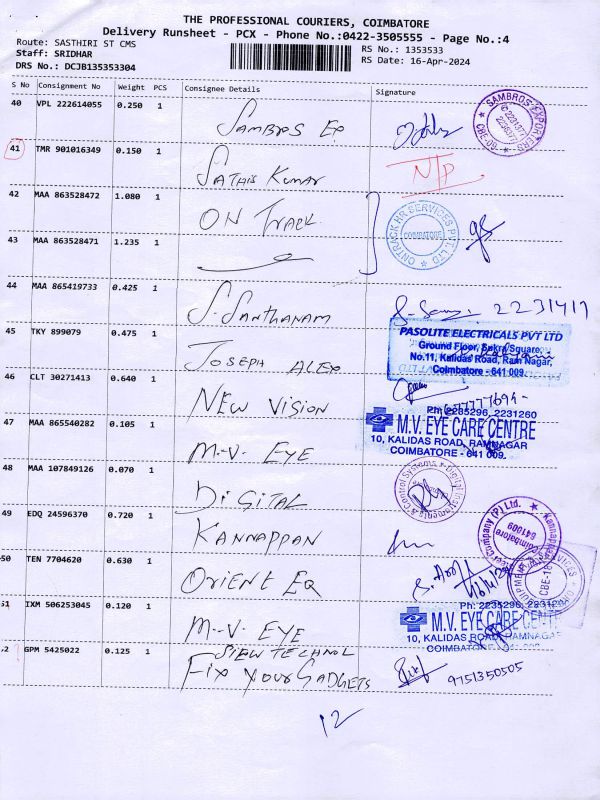 THE PROFESSIONAL COURIERS, COIMBATORE
Delivery Runsheet - PCX - Phone No.:0422-3505555 - Page No.:4
Route: SASTHIRI ST CMS
Staff: SRIDHAR
DRS No.: DCJB135353304
RS No.: 1353533
RS Date: 16-Apr-2024
S No Consignment No Weight PCS Consignee Details Signature
40 VPL 222614055 0.250 1 SAMBROS Ex
SAMBROS EXPORTERS
41 TMR 901016349 0.150 1 SATHIS KUMAR N/P
42 MAA 863528472 1.080 1 ON TRACK
ONTRACK HR SERVICES PVT. LTD
COIMBATORE
43 MAA 863528471 1.235 1
44 MAA 865419733 0.425 1 S. SANTHANAM
45 TKY 899079 0.475 1 JOSEPH ALEX
PASOLITE ELECTRICALS PVT LTD
Ground Floor, Sakra Square,
No.11, Kalidas Road, Ram Nagar,
Coimbatore - 641 009.
46 CLT 30271413 0.640 1 NEW VISION
47 MAA 865540282 0.105 1 M.V. EYE
Ph: 2235296, 2231260
M.V. EYE CARE CENTRE
10, KALIDAS ROAD, RAMNAGAR
COIMBATORE - 641 009.
48 MAA 107849126 0.070 1 DIGITAL
49 EDQ 24596370 0.720 1 KANNAPPAN
Coimbatore
641009
50 TEN 7704620 0.630 1 ORIENT EQ
51 IXM 506253045 0.120 1 M.V. EYE
Ph: 2235296, 2231260
M.V. EYE CARE CENTRE
10, KALIDAS ROAD, RAMNAGAR
COIMBATORE
52 GPM 5425022 0.125 1 SIEW TECHNOL
FIX YOUR GADGETS
9751350505
12